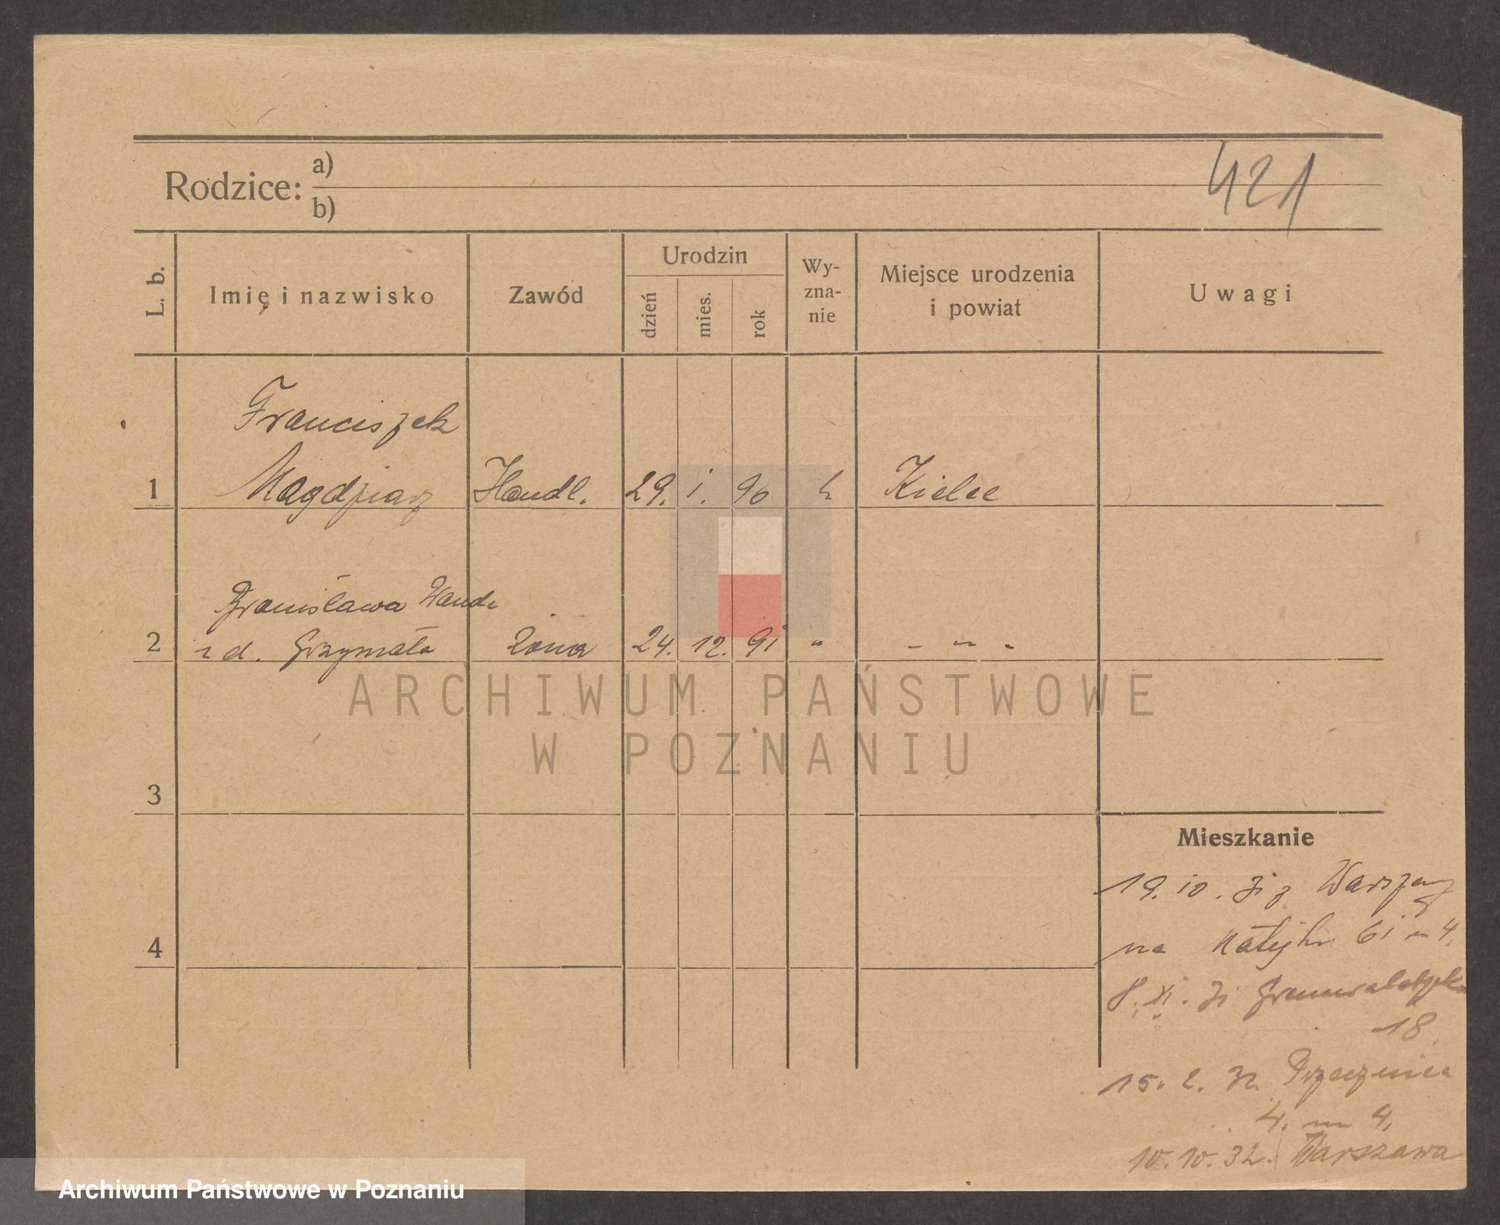 421
Rodzice: a)
b)
L. b. Imię i nazwisko Zawód Urodzin dzień mies. rok Wy-zna-nie Miejsce urodzenia i powiat Uwagi
Franciszek
1 Magdziarz Handl. 29. i. 90 k Kielce
Bronisława Wanda
2 z d. Grzymała żona 24. 12. 91 " - " -
ARCHIWUM PAŃSTWOWE
W POZNANIU
3
Mieszkanie
19. 10. 31 z Warszawy
4
na Matejki 61 m 4.
8. XI. 31 Grunwaldzka
18
15. 2. 32 Przecznica
4. m 4.
10. 10. 32. Warszawa
Archiwum Państwowe w Poznaniu